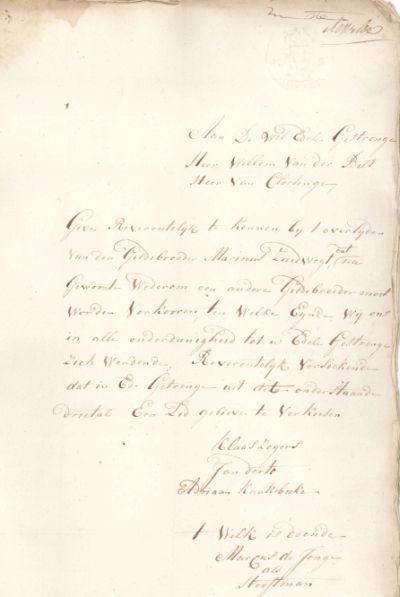 Aan D. Wel Edele Gestrenge
Heer Willem Van der Bilt
Heer Van Cloetinge,
Geve Reverentelyk te kennen by t overlyden
van den Gildebroeder Marinus Zuidwegt, dat na
Gewoonte Wederom een andere Gildebroeder moet
Worden Verkooren, ten Welke Eynde, Wy ons
in alle onderdanigheid tot u Edele Gestrenge
Zich Wendende, Reverentelyk Versoekende
dat u Ed. Gestrenge uit dit onderstaande
drietal Een Lid gelieve te Verkiesen
Klaas Zegers
Jan
Adriaan
t Welk is doende
Marcus de Jonge
als
Hooftman